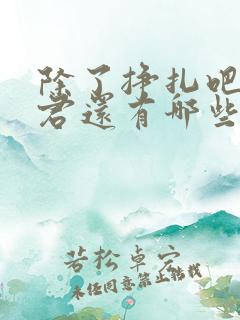 除了挣扎吧
君還有哪些
若松卓宏
未经同意禁止转载